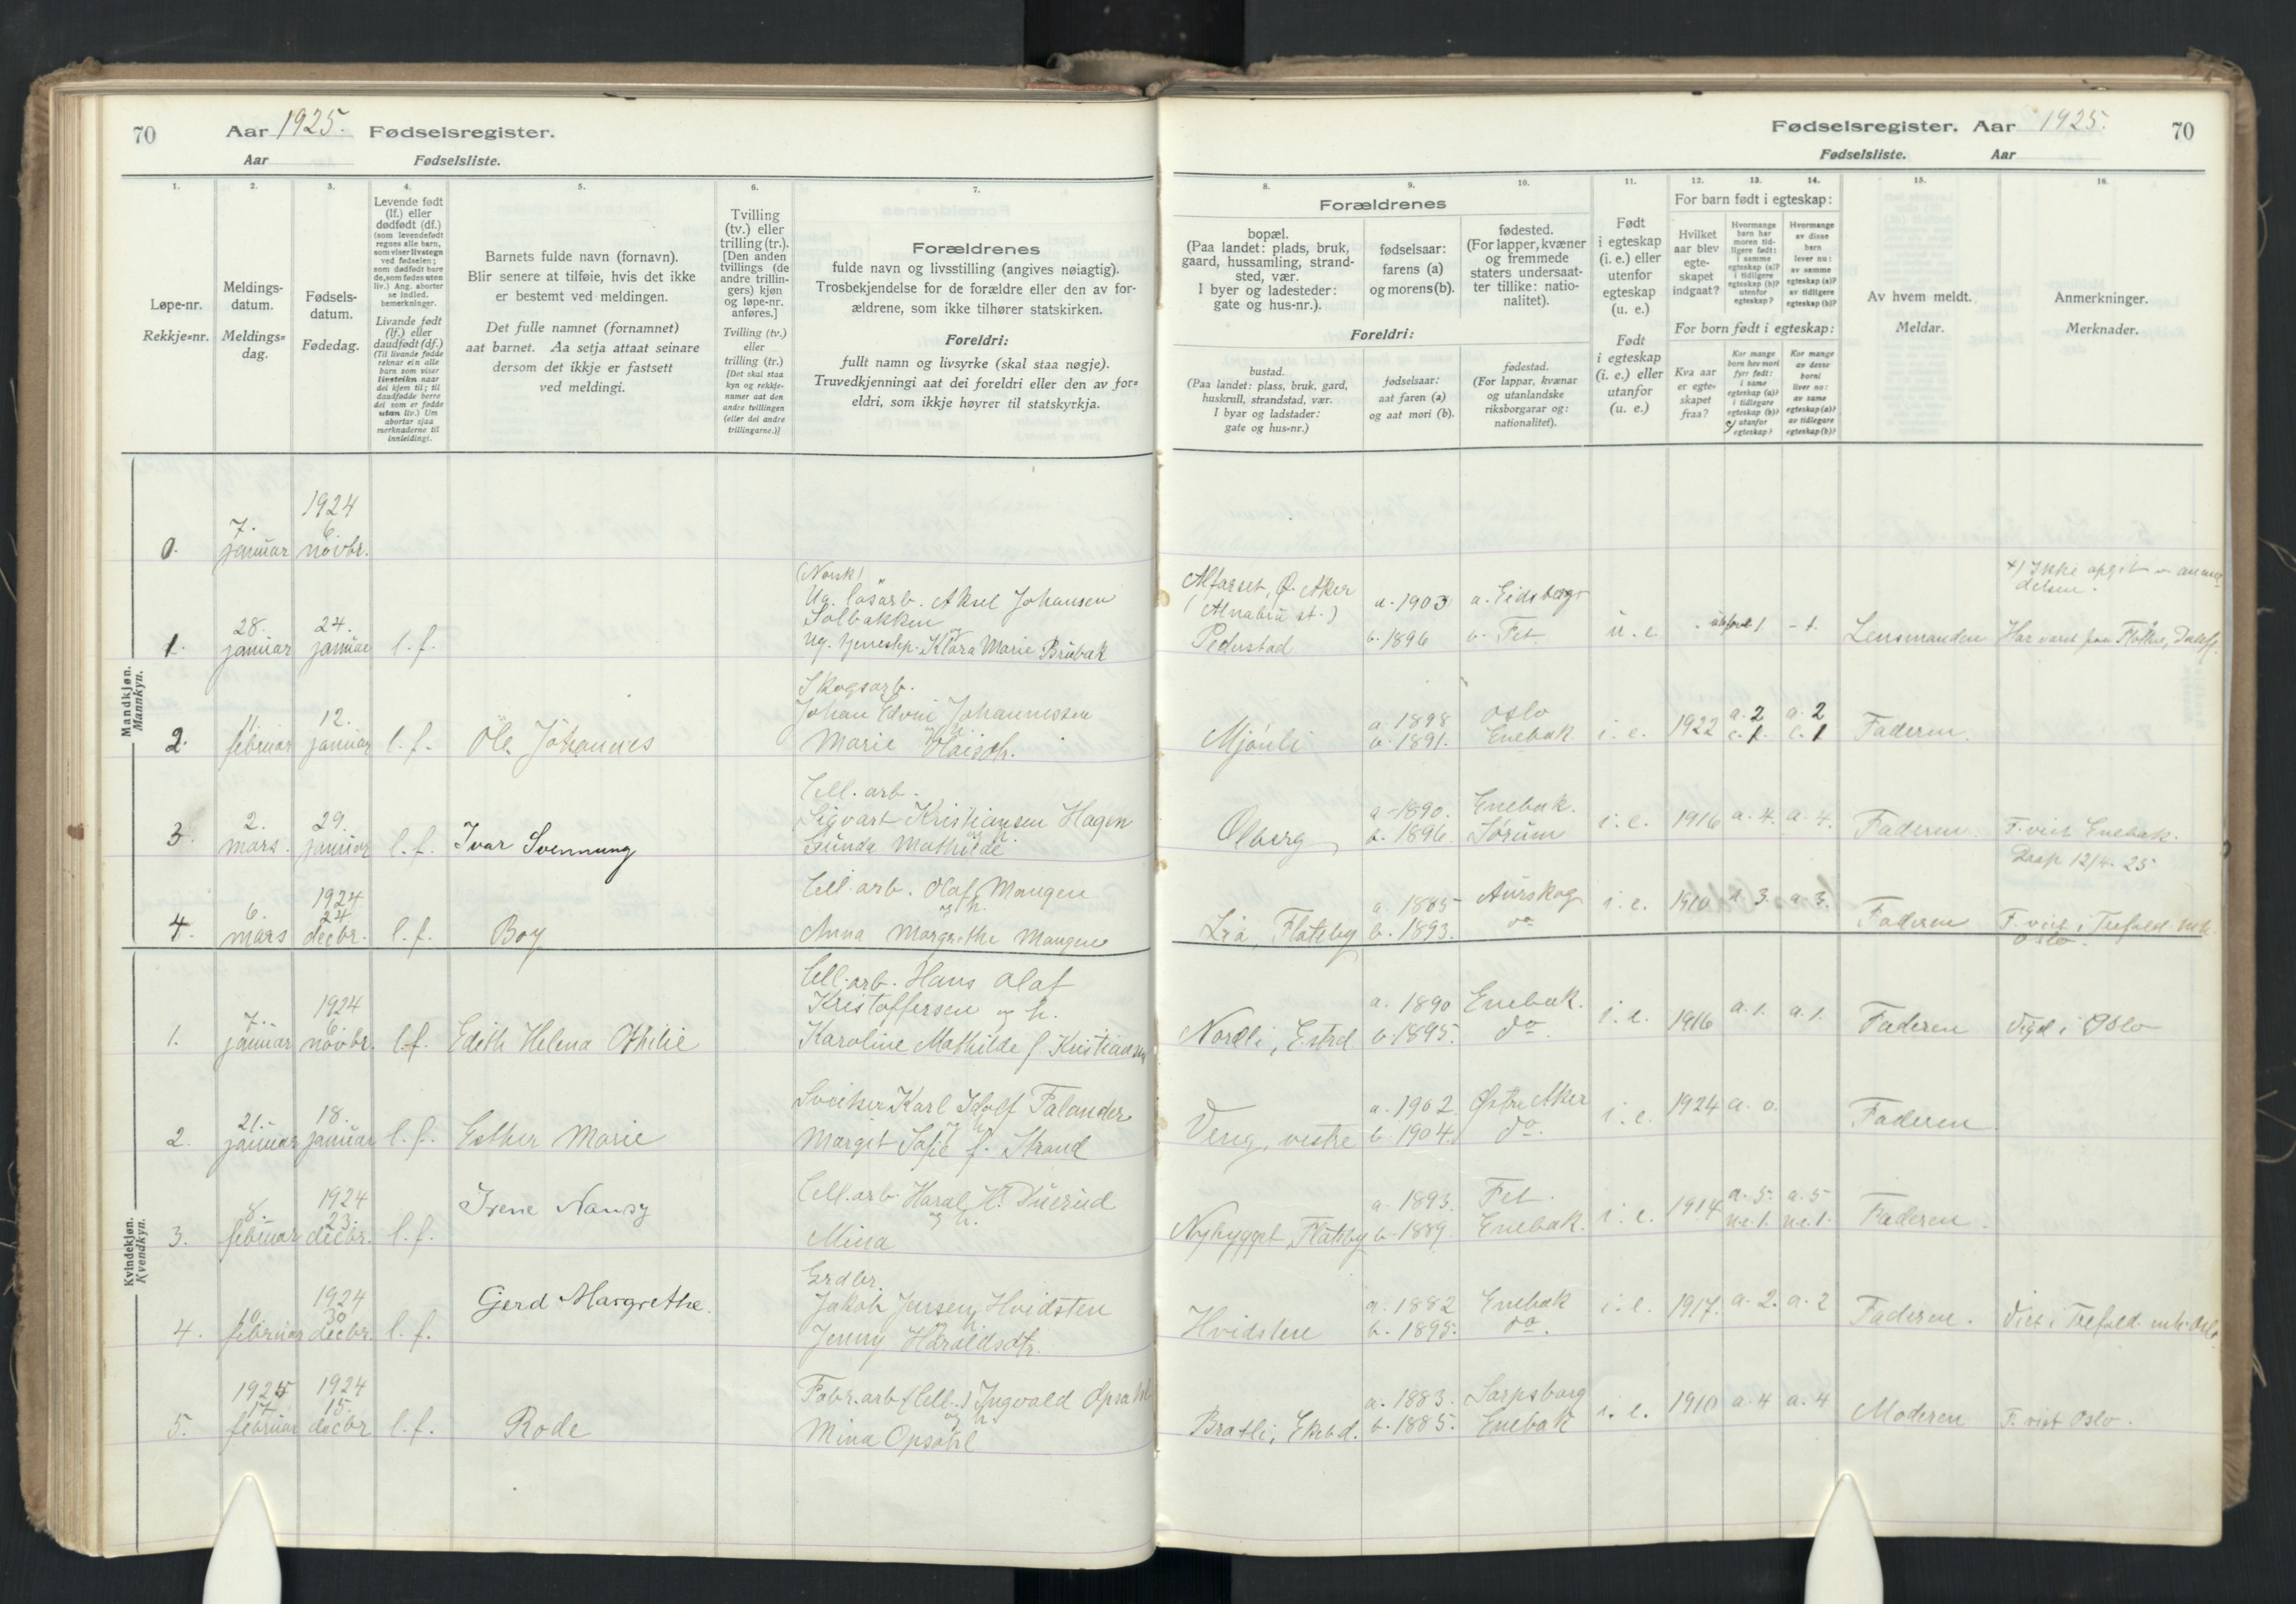 70 Aar 1925. Fødselsregister.
Aar Fødselsliste.
1. 2. 3. 4. 5. 6. 7.
Løpe-nr.
Rekkje-nr.
Meldings-
datum.
Meldings-
dag.
Fødsels-
datum.
Fødedag.
Levende født
(lf.) eller
dødfødt (df.)
(som levendefødt
regnes alle barn,
som viser livstegn
ved fødselen;
som dødfødt bare
de, som fødes uten
liv.) Ang. aborter
se indled.
bemerkninger.
Livande født
(lf.) eller
daudfødt (df.)
(Til livande fødde
reknar ein alle
barn som viser
livsteikn naar
dei kjem til; til
daudfødde berre
dei som er fødde
utan liv.) Um
abortar sjaa
merknaderne til
innleidingi.
Barnets fulde navn (fornavn).
Blir senere at tilføie, hvis det ikke
er bestemt ved meldingen.
Det fulle namnet (fornamnet)
aat barnet. Aa setja attaat seinare
dersom det ikkje er fastsett
ved meldingi.
Tvilling
(tv.) eller
trilling (tr.).
[Den anden
tvillings (de
andre trillin-
gers) kjøn
og løpe-nr.
anføres.]
Tvilling (tv.)
eller
trilling (tr.)
[Det skal staa
kyn og rekkje-
numer aat den
andre tvillingen
(eller dei andre
trillingarne.)]
Forældrenes
fulde navn og livsstilling (angives nøiagtig).
Trosbekjendelse for de forældre eller den av for-
ældrene, som ikke tilhører statskirken.
Foreldri:
fullt namn og livsyrke (skal staa nøgje).
Truvedkjenningi aat dei foreldri eller den av for-
eldri, som ikkje høyrer til statskyrkja.
Mandkjøn.
Mannkyn.
0. 7. januar 1924 6. novbr.
1. 28. januar 24. januar l. f.
(Norsk)
Ug. løsarb. Aksel Johansen
Solbakken
og
Ug. tjenestep. Klara Marie Brubak
2. 11. februar 12. januar l. f. Ole Johannes
Skogsarb.
Johan Edvin Johannessen
og h.
Marie
3. 2. mars. 29. januar l. f. Ivar Svennung
Cell. arb.
Sigvart Kristiansen Hagen
og h.
Gunda Mathilde
4. 6. mars 1924 24 decbr. l. f. Boy
Cell. arb. Olaf Mangen
og h.
Anna Margrethe Mangen
Kvindekjøn.
Kvendkyn.
1. 7. januar 1924 6 novbr. l. f. Edith Helena Othilie
Cell. arb. Hans Olaf
Kristoffersen og h.
Karoline Mathilde f. Kristiansen
2. 21. januar 18. januar l. f. Esther Marie
Sveiser Karl Idolf Falander
og h.
Margit Sofie f. Strand
3. 8. februar 1924 23. decbr. l. f. Irene Nancy
Cell. arb. Haral H.
og h.
Mina
4. 10 februar 1924 30 decbr. l. f. Gjerd Margrethe.
Grdbr.
Jakob Jensen Hvidsten
og h.
Jenny Haraldsdtr.
5. 1925 17 februar 1924 15. decbr l. f. Rode
Fabr. arb. (Cell.) Ingvald Opsahl
og h.
Mina Opsahl
Fødselsregister. Aar 1925. 70
Fødselsliste. Aar
8. 9. 10. 11. 12. 13. 14. 15. 16.
Forældrenes
bopæl.
(Paa landet: plads, bruk,
gaard, hussamling, strand-
sted, vær.
I byer og ladesteder:
gate og hus-nr.).
fødselsaar:
farens (a)
og morens (b).
fødested.
(For lapper, kvæner
og fremmede
staters undersaat-
ter tillike: natio-
nalitet).
Foreldri:
bustad.
(Paa landet: plass, bruk, gard,
huskrull, strandstad, vær.
I byar og ladstader:
gate og hus-nr.)
fødselsaar:
aat faren (a)
og aat mori (b).
fødestad.
(For lappar, kvænar
og utanlandske
riksborgarar og:
nationalitet).
Født
i egteskap
(i. e.) eller
utenfor
egteskap
(u. e.)
Født
i egteskap
(i. e.) eller
utanfor
(u. e.)
For barn født i egteskap:
Hvilket
aar blev
egte-
skapet
indgaat?
Hvormange
barn har
moren tid-
ligere født:
i samme
egteskap (a)?
i tidligere
egteskap (b)?
utenfor
egteskap?
Hvormange
av disse
barn
lever nu:
av samme
egteskap (a)?
av tidligere
egteskap (b)?
For born født i egteskap:
Kva aar
er egte-
skapet
fraa?
Kor mange
born hev mori
fyrr født:
i same
egteskap (a)?
i tidlegare
egteskap (b)?
c) utanfor
egteskap?
Kor mange
av desse
borni
liver no:
av same
egteskap (a)?
av tidlegare
egteskap (b)?
Av hvem meldt.
Meldar.
Anmerkninger.
Merknader.
Alfarset, Ø. Aker
(Alnabru st.)
Pedustad
a. 1903 a. Eidsberg
b. 1896 b. Fet u. e. 1 - 1. Lensmanden
x) Ikke opgit
Har været paa
Mjønli a. 1898 Oslo
b. 1891. Enebak i. e. 1922 a. 2 a. 2
c. 1. c. 1 Faderen.
Olberg a. 1890. Enebak.
b. 1896. Sørum i. e. 1916 a. 4. a. 4. Faderen. F. viet Enebak.
Daap 12/4. 25
Lia, Flateby a. 1885 Aurskog
b. 1893. do i. e. 1910 a. 3. a. 3. Faderen F. viet i Trefold. mk.
Oslo.
Nordli, a. 1890 Enebak.
b. 1895. do i. e. 1916 a. 1. a. 1. Faderen Viet i Oslo
Veng, vestre a. 1902. Østre Aker
b. 1904. do. i. e. 1924 a. 0. Faderen
Nybygget, Flateby a. 1893. Fet.
b. 1889. Enebak. i. e. 1914 a. 5. a. 5
u.e. 1. u.e. 1. Faderen.
Hvidsten a. 1882 Enebak
b. 1895. do. i. e. 1917. a. 2. a. 2 Faderen. Viet i Trefold. mk. Oslo
Bratli, Ekebd. a. 1883. Sarpsborg
b. 1885. Enebak i. e. 1910 a. 4 a. 4 Moderen F. viet Oslo.